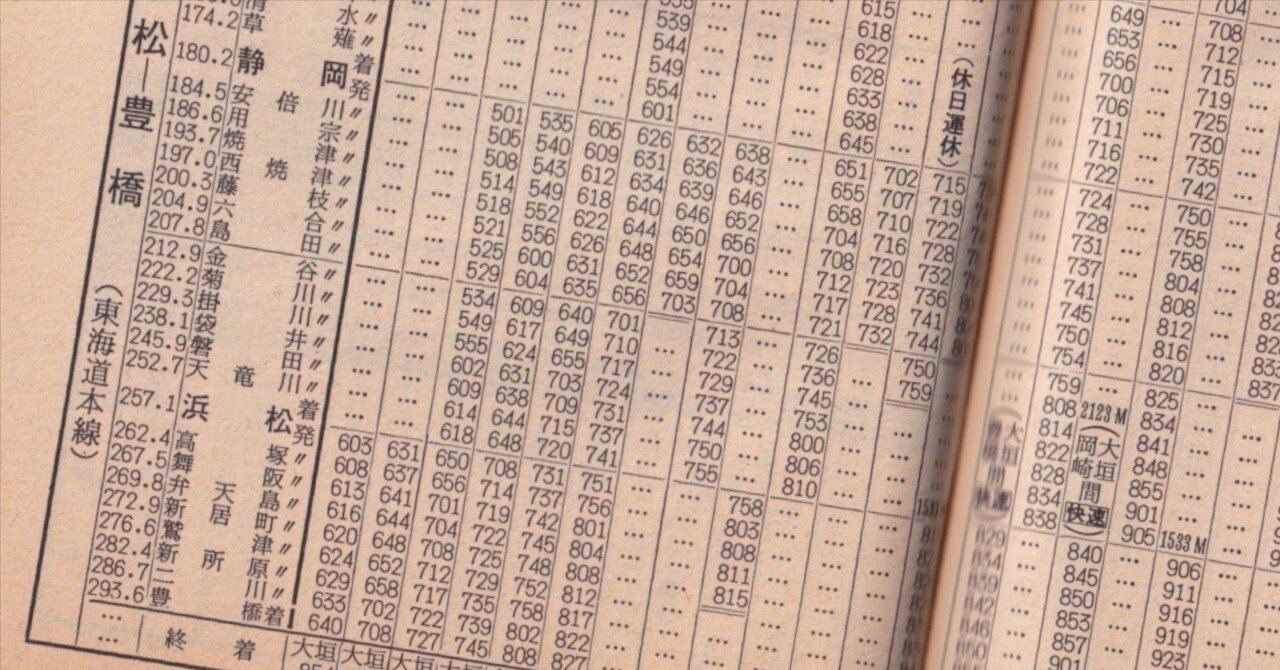 松―豊橋
(東海道本線)
174.2 草薙 〃
180.2 静岡 着
発
184.5 安倍川 〃
186.6 用宗 〃
193.7 焼津 〃
197.0 西焼津 〃
200.3 藤枝 〃
204.9 六合 〃
207.8 島田 〃
212.9 金谷 〃
222.2 菊川 〃
229.3 掛川 〃
238.1 袋井 〃
245.9 磐田 〃
252.7 天竜川 〃
257.1 浜松 着
発
262.4 高塚 〃
267.5 舞阪 〃
269.8 弁天島 〃
272.9 新居町 〃
276.6 鷲津 〃
282.4 新所原 〃
286.7 二川 〃
293.6 豊橋 着
終着
603 608 613 616 620 624 629 633 640 大垣
631 637 641 644 648 652 658 702 708 大垣
501 505 508 514 518 521 525 529 534 549 555 602 609 614 618 650 656 701 704 708 712 717 722 727
535 540 543 549 552 556 600 604 609 617 624 631 638 644 648 708 714 719 722 725 729 735 739 745
605 609 612 618 622 626 631 635 640 649 655 703 709 715 720 731 737 742 745 748 752 758 802 808
539 544 549 554 601 626 631 634 640 644 648 652 656 701 710 717 724 731 737 741 751 756 801 804 808 812 817 822 827
632 636 639 646 650 654 659 703
638 643 646 652 656 700 704 708 713 722 729 737 744 750 755 758 803 808 811 815
615 618 622 628 633 638 645 651 655 658 704 708 712 717 721 726 736 745 753 800 806 810
702 707 710 716 720 723 728 732
(休日運休) 715 719 722 728 732 736 741 744 750 759
649 653 656 700 706 711 716 722 724 728 731 737 741 745 750 754 759 808 814 822 828 834 838
2123M (大垣岡崎間快速) 840 845 850 853 857
704 708 712 715 719 725 730 735 742 750 755 758 804 808 812 816 820 825 834 841 848 855 901 905
1533M 906 911 916 919 923